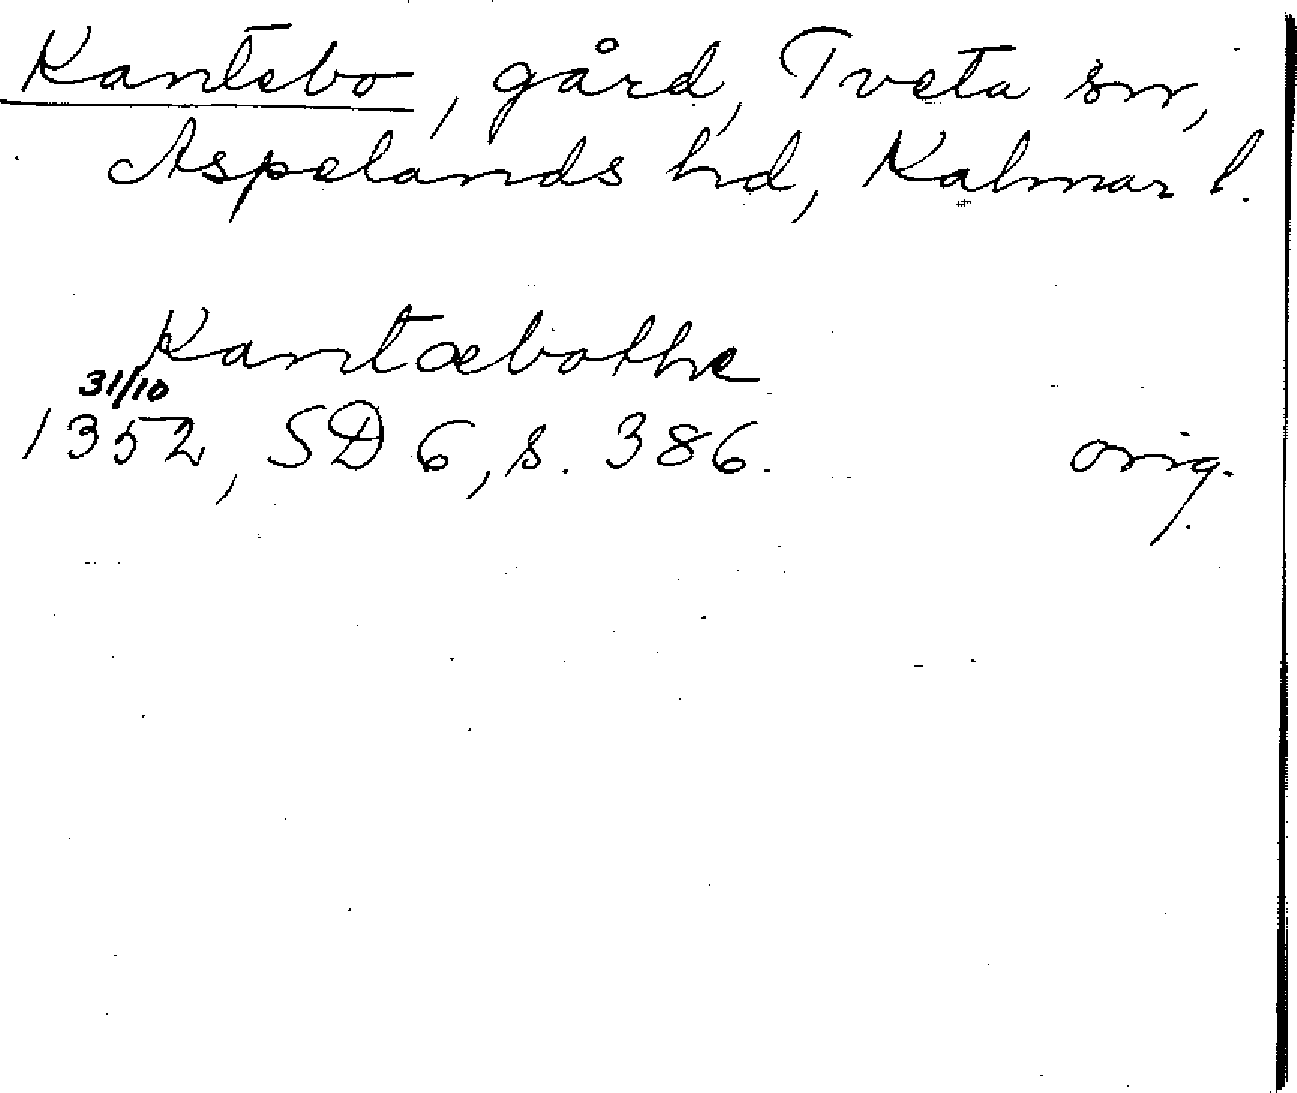 Kantebo, gård, Tveta sn,
Aspelands hd, Kalmar l.
Kantæbothe
31/10
1352, SD 6, s. 386. orig.